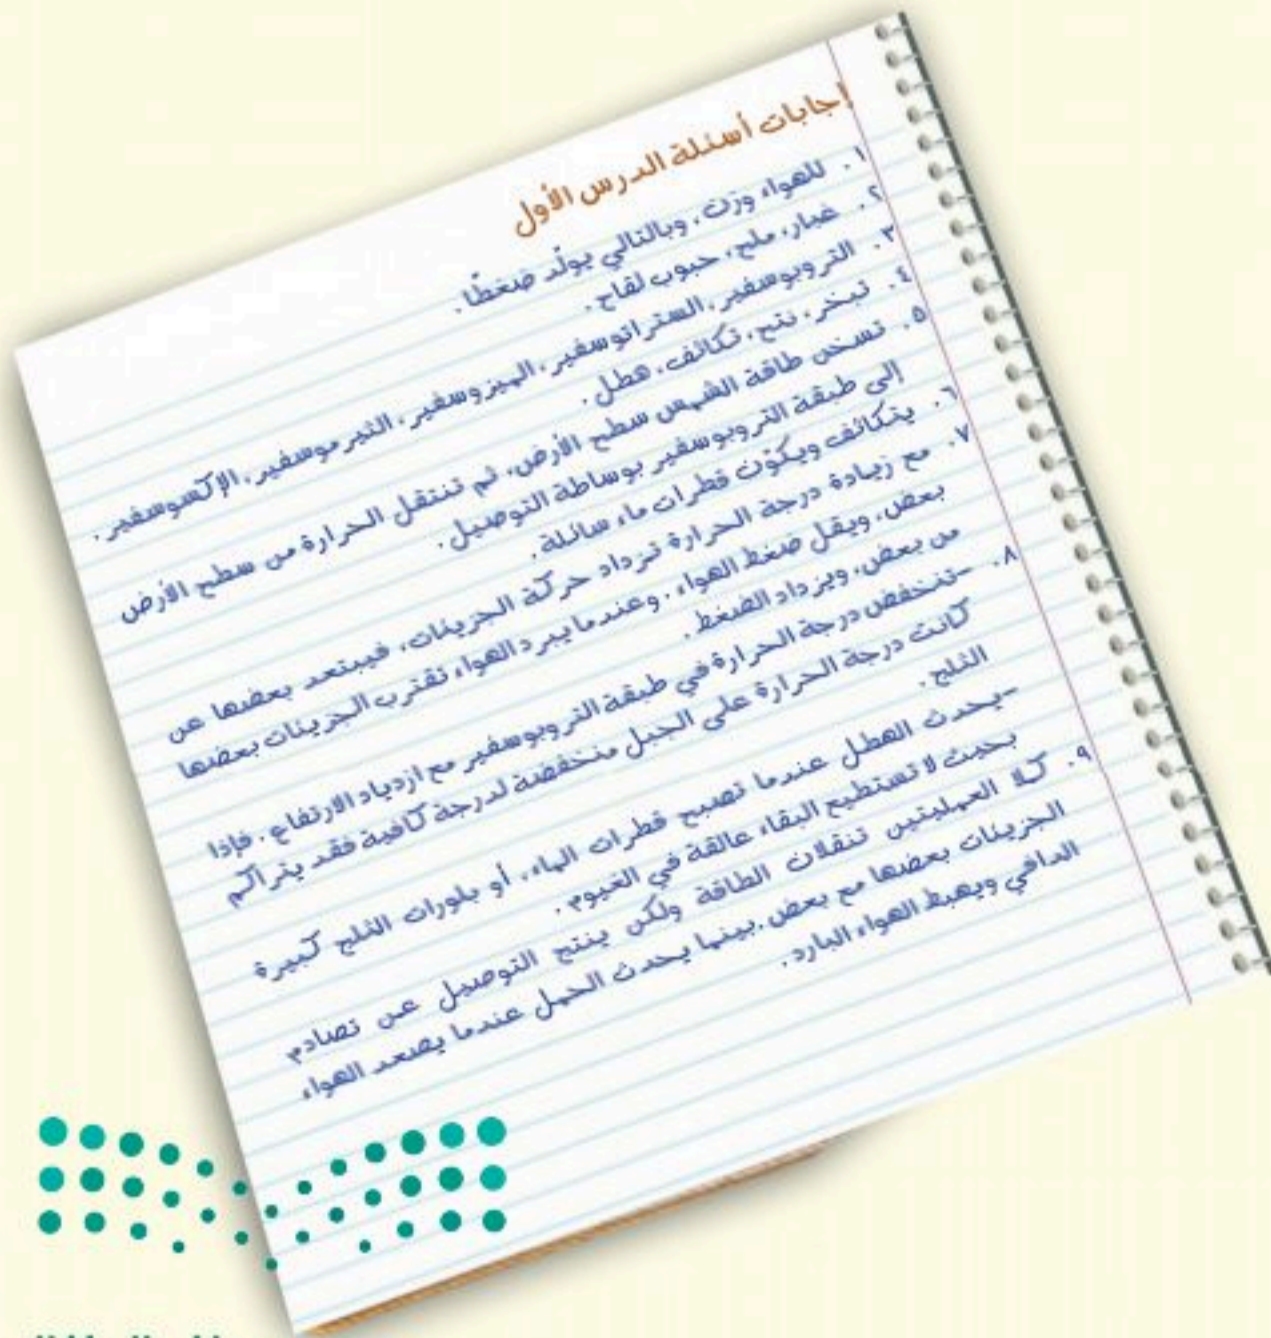 إجابات أسئلة الدرس الأول
١. للهواء وزن، وبالتالي يولّد ضغطًا.
٢. غبار، ملح، حبوب لقاح.
٣. التروبوسفير، الستراتوسفير، الميزوسفير، الثيرموسفير، الإكسوسفير.
٤. تبخر، نتح، تكاثف، هطل.
٥. تسخن طاقة الشمس سطح الأرض، ثم تنتقل الحرارة من سطح الأرض
إلى طبقة التروبوسفير بوساطة التوصيل.
٦. يتكاثف ويكوّن قطرات ماء سائلة.
٧. مع زيادة درجة الحرارة تزداد حركة الجزيئات، فيبتعد بعضها عن
بعض، ويقل ضغط الهواء. وعندما يبرد الهواء تقترب الجزيئات بعضها
من بعض، ويزداد الضغط.
٨. -تنخفض درجة الحرارة في طبقة التروبوسفير مع ازدياد الارتفاع. فإذا
كانت درجة الحرارة على الجبل منخفضة لدرجة كافية فقد يتراكم
الثلج.
-يحدث الهطل عندما تصبح قطرات الماء، أو بلورات الثلج كبيرة
بحيث لا تستطيع البقاء عالقة في الغيوم.
٩. كلا العمليتين تنقلان الطاقة ولكن ينتج التوصيل عن تصادم
الجزيئات بعضها مع بعض. بينما يحدث الحمل عندما يصعد الهواء
الدافئ ويهبط الهواء البارد.